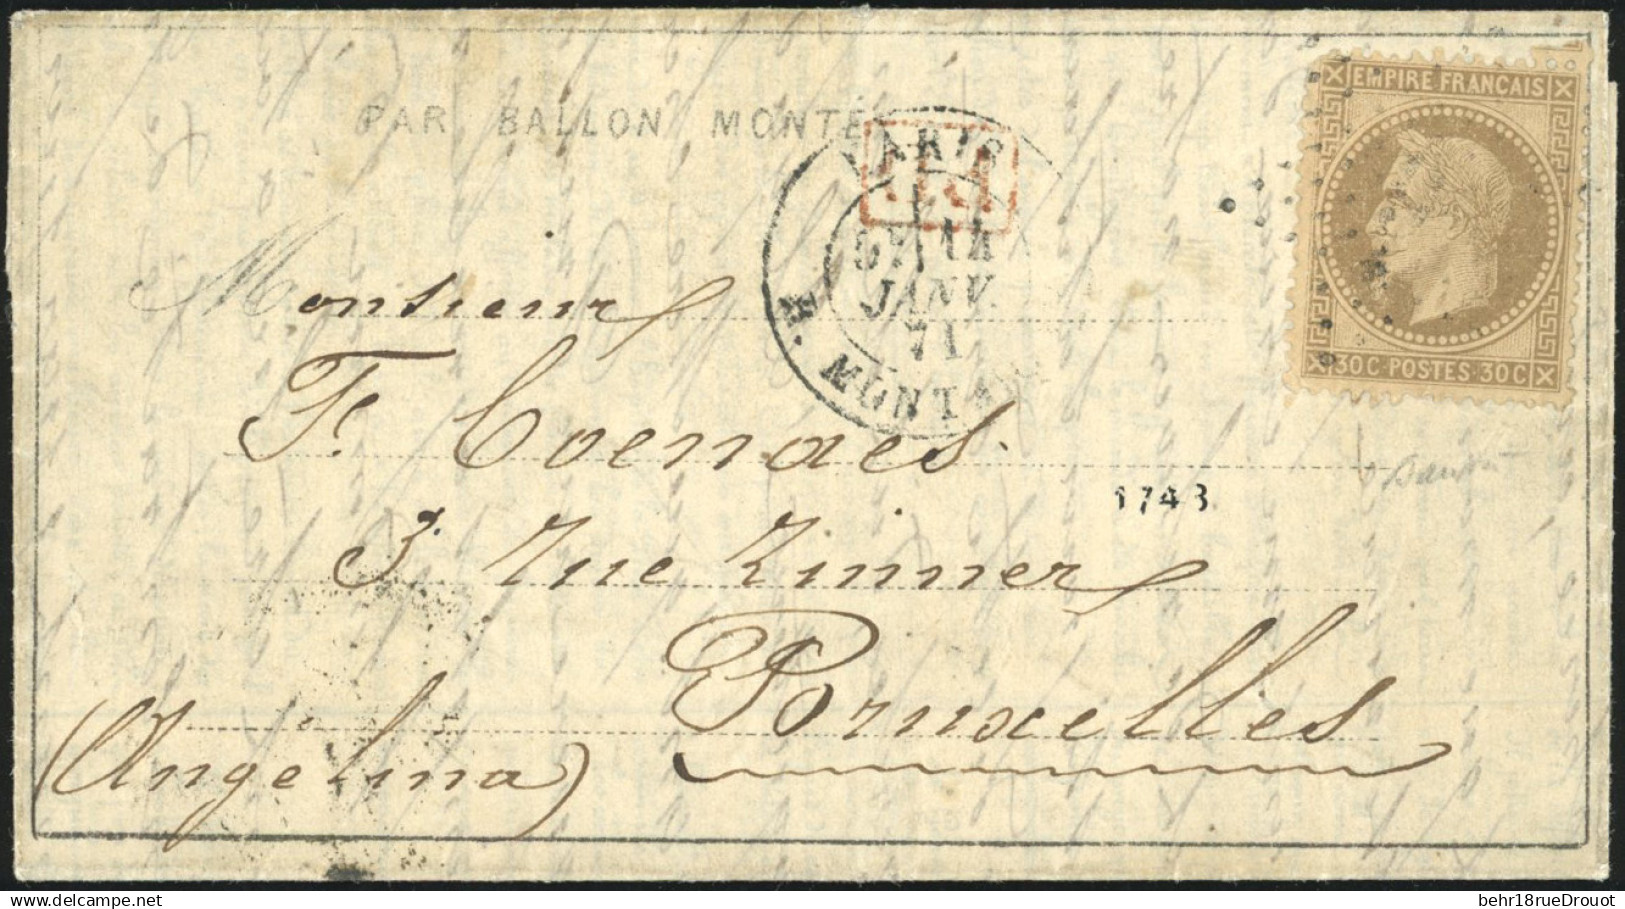 EMPIRE FRANÇAIS
PAR BALLON MONTÉ
PARIS
JANV.
71
R. MONTA
30 C POSTES 30 C
Monsieur
Fs Coenaes
1743
3 Rue Zinner
Bruxelles
(Angelina)
behr18rueDrouot